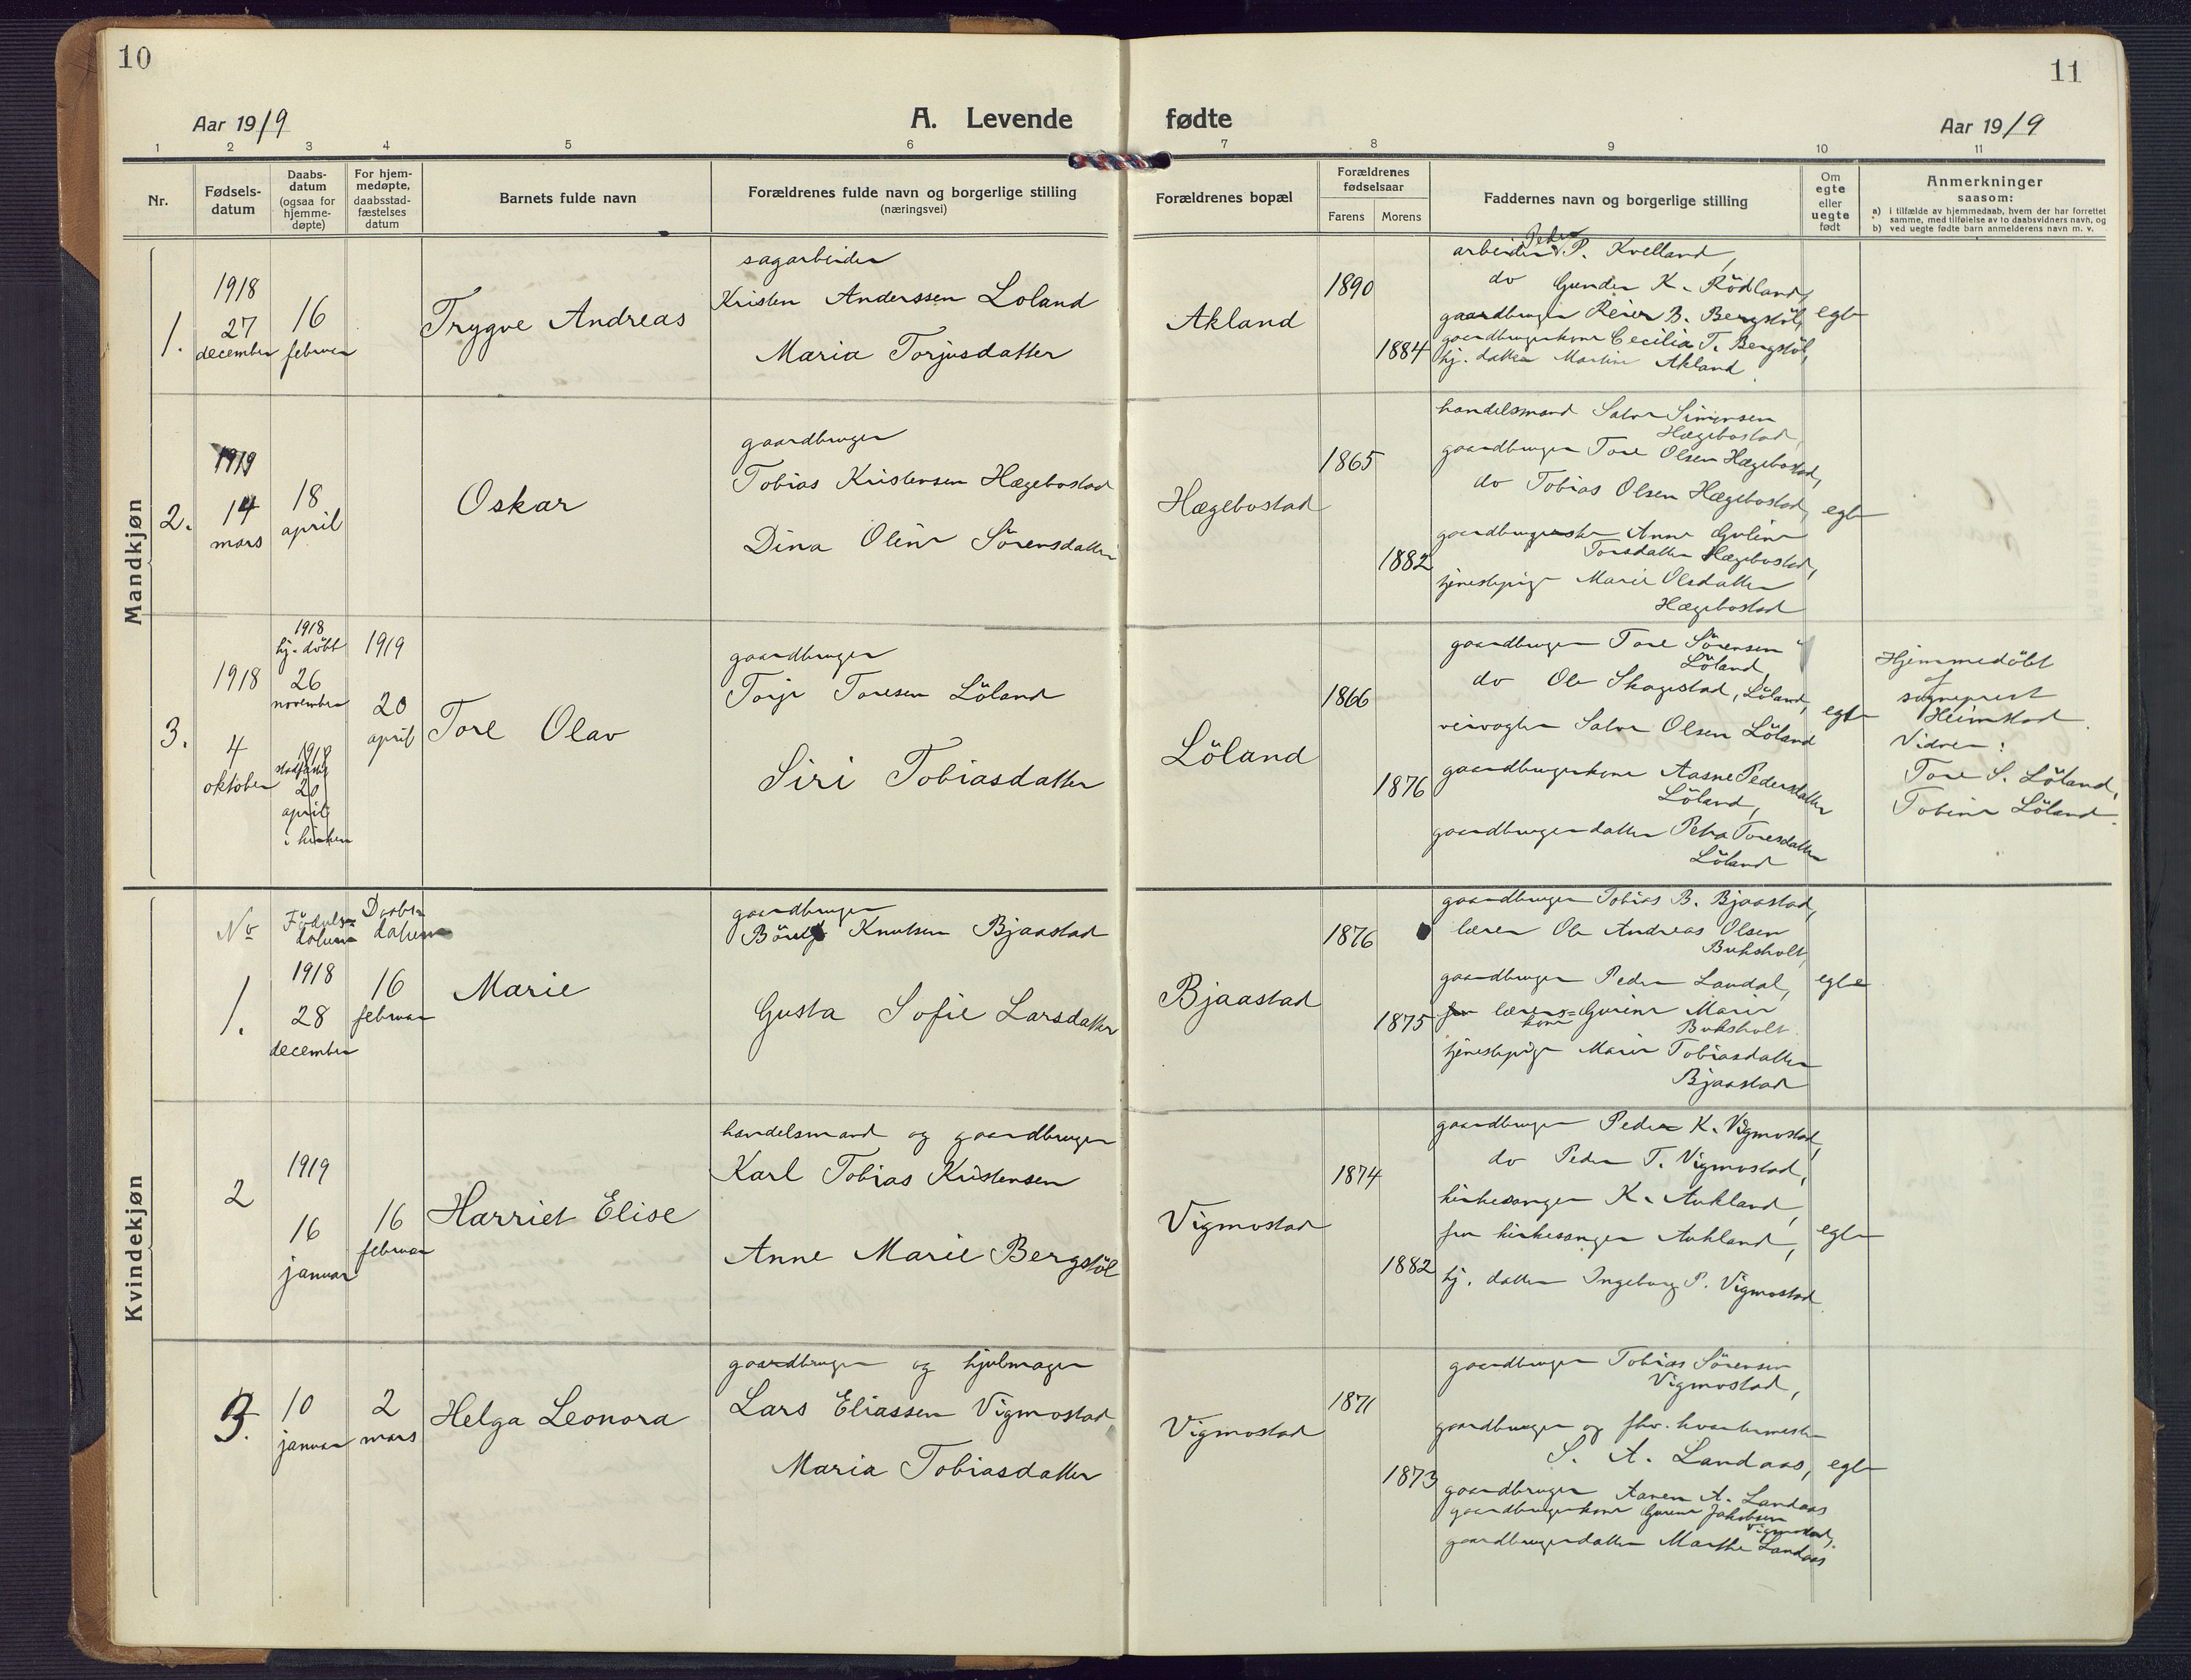 10
11
Aar 1919
A. Levende
fødte
Aar 1919
1 2 3 4 5 6 7 8 9 10 11
Nr.
Fødsels-
datum
Daabs-
datum
(ogsaa for
hjemme-
døpte)
For hjem-
medøpte,
daabsstad-
fæstelses
datum
Barnets fulde navn
Forældrenes fulde navn og borgerlige stilling
(næringsvei)
Forældrenes bopæl
Forældrenes
fødselsaar
Farens
Morens
Faddernes navn og borgerlige stilling
Om
egte
eller
uegte
født
Anmerkninger
saasom:
a) i tilfælde av hjemmedaab, hvem der har forrettet
samme, med tilføielse av to daabsvidners navn, og
b) ved uegte fødte barn anmelderens navn m. v.
Mandkjøn
1.
1918
27
december
16
februar
Trygve Andreas
sagarbeider
Kristen Anderssen Loland
Maria Torjusdatter
Akland
1890
1884
arbeider Peder P. Kvelland,
do Gunder K. Rödland,
gaardbruger Reier B. Bergstöl,
gaardbrugerkone Cecilia T. Bergstöl,
hj. datter Martine Akland.
egte
2.
1919
14
mars
18
april
Oskar
gaardbruger
Tobias Kristensen Hægebostad
Dina Oline Sörensdatter
Hægebostad
1865
1882
handelsmand Salve Simonsen
Hægebostad,
gaardbruger Tore Olsen Hægebostad,
do Tobias Olsen Hægebostad,
Anne Guline
Torsdatter Hægebostad,
tjenestepige Marie Olsdatter
Hægebostad
egte
3.
1918
4
oktober
1918
hj. döbt
26
november
1918
stadfæstet
20
april
i kirken
1919
20
april
Tore Olav
gaardbruger
Torje Toresen Löland
Siri Tobiasdatter
Löland
1866
1876
gaardbruger Tore Sörensen
Löland,
do Ole Skagestad, Löland,
veivogter Salve Olsen Löland
gaardbrugerkone Aasne Pedersdatter
Löland,
gaardbrugerdatter Petra Toresdatter
Löland
egte
Hjemmedöbt
af
sogneprest
Heimstad.
Vidner:
Tore S. Löland,
Tobine Löland.
Kvindekjøn
No
Födsels-
datum
Daabs-
datum
1.
1918
28
december
16
februar
Marie
gaardbruger
Knutsen Bjaastad
Gusta Sofie Larsdatter
Bjaastad
1876
1875
gaardbruger Tobias B. Bjaastad,
lærer Ole Andreas Olsen
Buksholt,
gaardbruger Peder Landal,
lærer-
kone Gurine Marie
Buksholt.
tjenestepige Marie Tobiasdatter
Bjaastad
egte
2
1919
16
januar
16
februar
Harriet Elise
handelsmand og gaardbruger
Karl Tobias Kristensen
Anne Marie Bergstöl
Vigmostad
1874
1882
gaardbruger Peder K. Vigmostad,
do Peder T. Vigmostad,
kirkesanger K. Aukland,
fru kirkesanger Aukland,
hj. datter Ingeborg P. Vigmostad.
egte
3.
10
januar
2
mars
Helga Leonora
gaardbruger og hjulmager
Lars Eliassen Vigmostad
Maria Tobiasdatter
Vigmostad
1871
1873
gaardbruger Tobias Sörensen
Vigmostad,
gaardbruger og fhv. kvartermester
S. A. Landaas,
gaardbruger Aanen A. Landaas
gaardbrugerkone Gurine Jakobsen
Vigmostad,
gaardbrugerdatter Marthe Landaas
egte